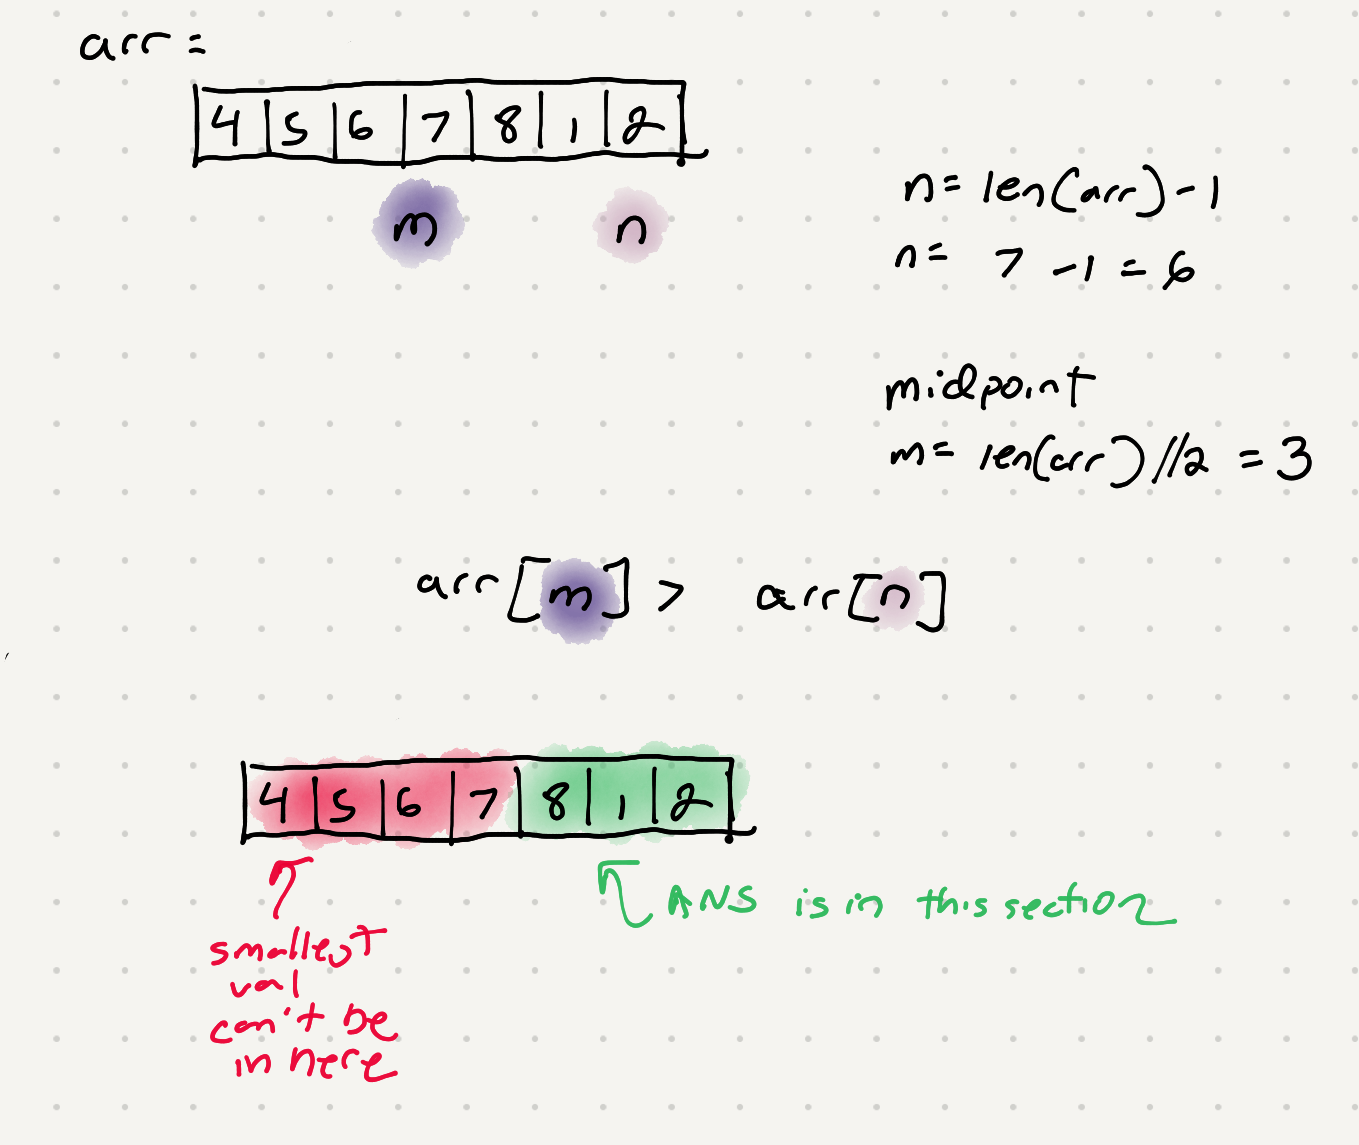 arr =
4 5 6 7 8 1 2
m n
n = len(arr) - 1
n = 7 - 1 = 6
midpoint
m = len(arr)//2 = 3
arr[m] > arr[n]
4 5 6 7 8 1 2
ANS is in this section
smallest
val
can't be
in here